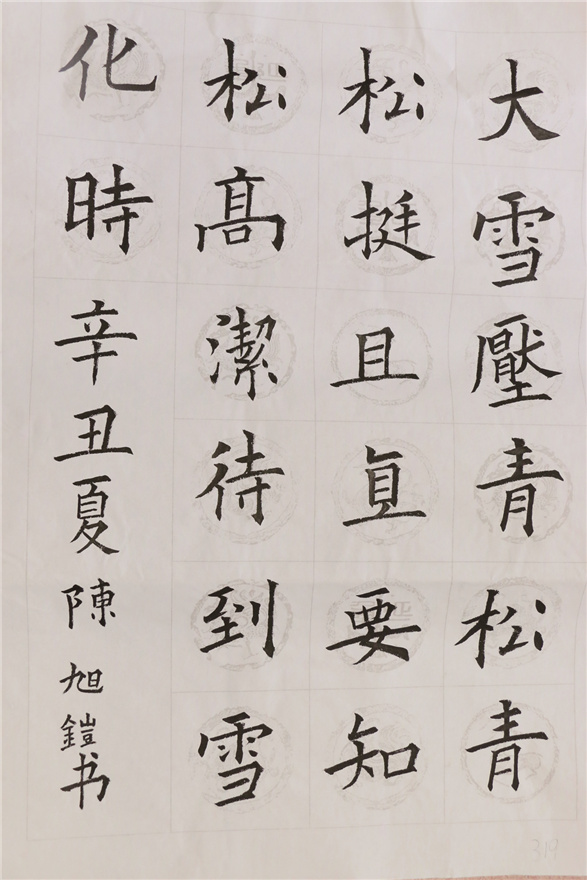 大雪壓青松青
松挺且直要知
松髙潔待到雪
化時辛丑夏陳旭鎧书